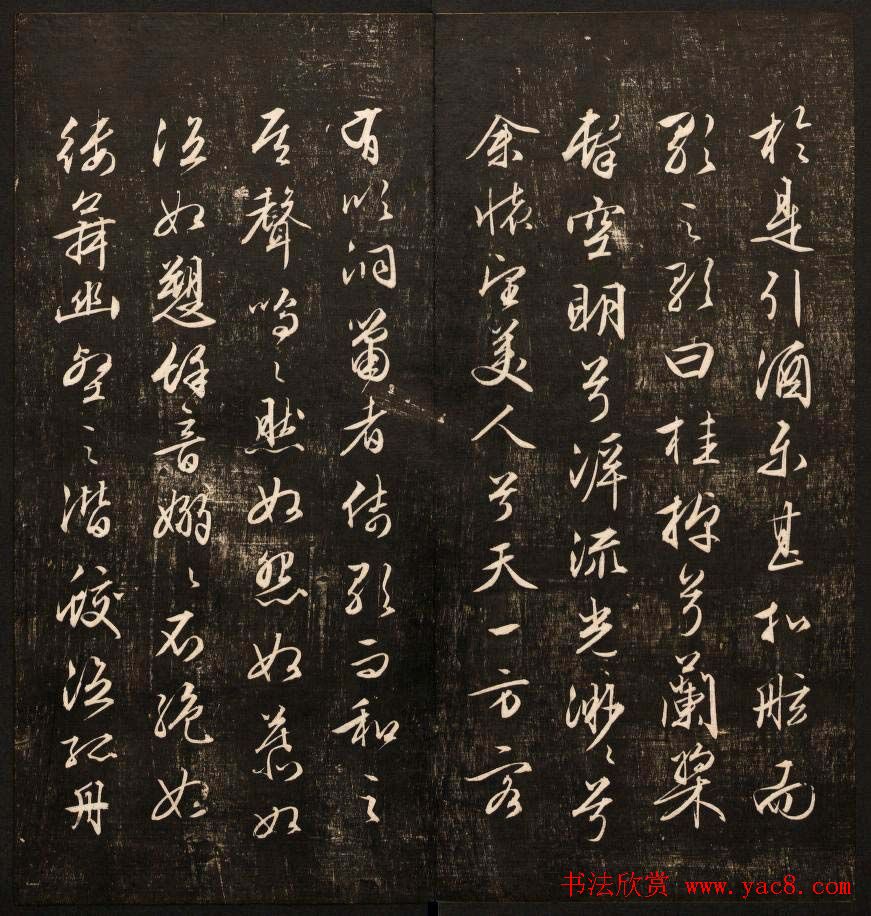 於是引酒樂甚扣舷而
歌之歌曰桂棹兮蘭槳
擊空明兮泝流光渺〻兮
余懷望美人兮天一方客
有吹洞簫者倚歌而和之
其聲嗚〻然如怨如慕如
泣如愬餘音嫋〻不絕如
縷舞幽壑之潛蛟泣孤舟
书法欣赏 www.yac8.com